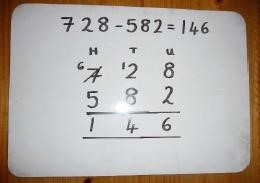 728-582=146
H T U
6 7 1 2 8
5 8 2
1 4 6